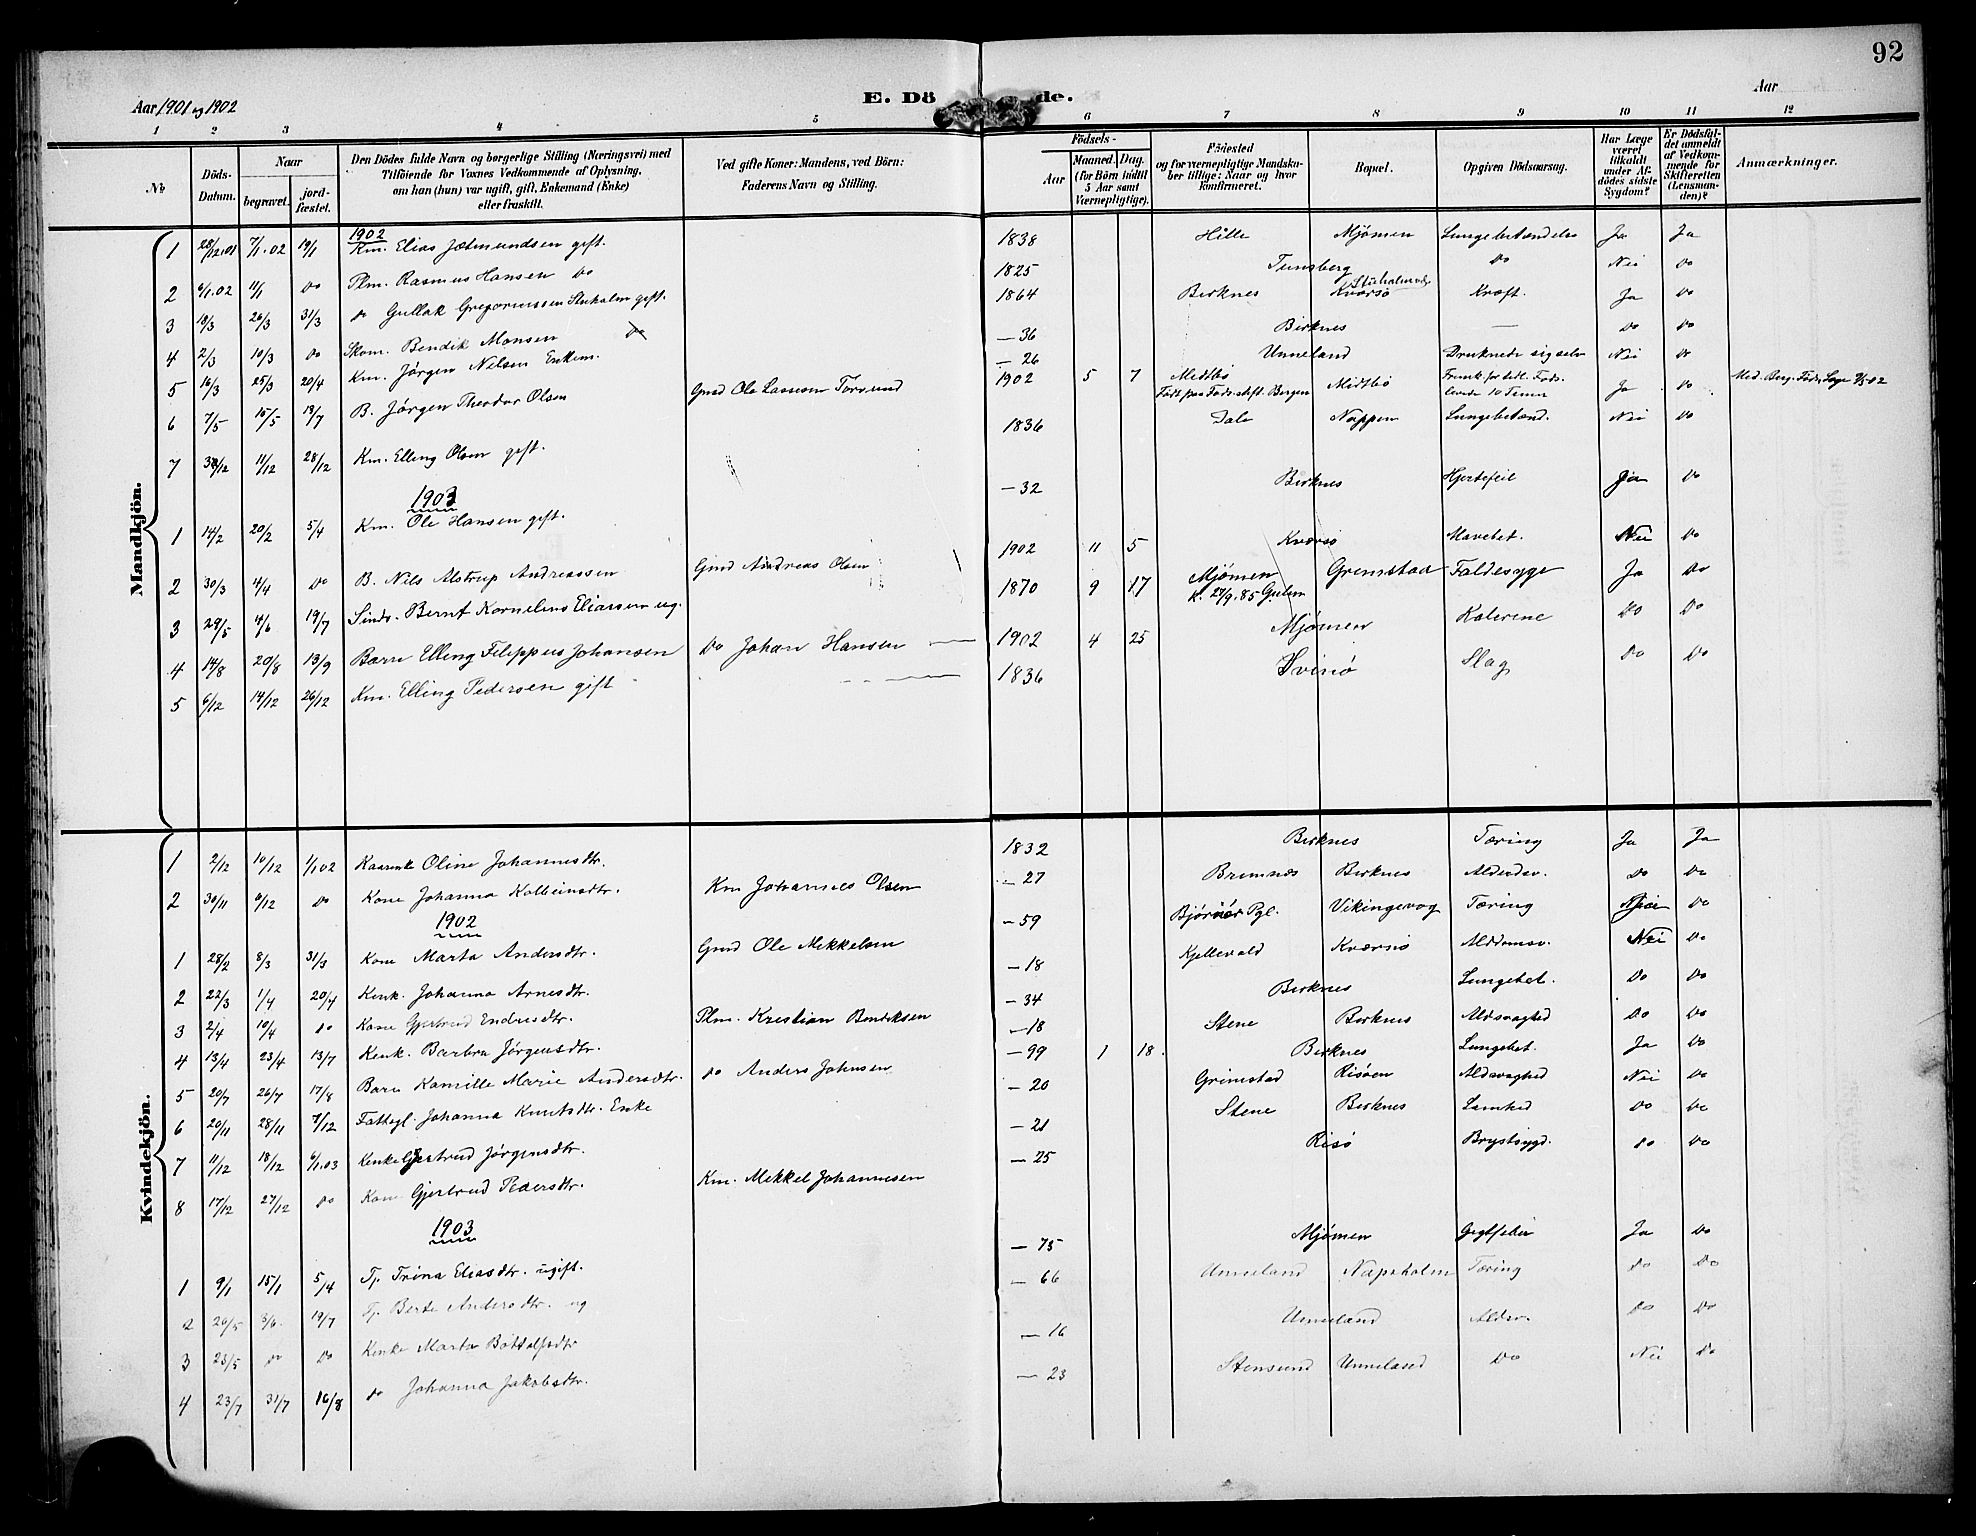 92
Aar 1901 og 1902
E. Dö de.
Aar
1 2 3 4 5 6 7 8 9 10 11 12
No
Döds-Datum.
Naar
begravet.
jord-fæstet.
Den Dödes fulde Navn og borgerlige Stilling (Næringsvei) med
Tilföiende for Voxnes Vedkommende af Oplysning,
om han (hun) var ugift, gift, Enkemand (Enke)
eller fraskilt.
Ved gifte Koner: Mandens, ved Börn:
Faderens Navn og Stilling.
Födsels-
Aar
Maaned. Dag.
(for Börn indtil
5 Aar samt
Værnepligtige).
Födested
og for værnepligtige Mandska-
ber tillige: Naar og hvor
konfirmeret.
Bopæl.
Opgiven Dödsaarsag.
Har Læge
været
tilkaldt
under Af-
dödes sidste
Sygdom?
Er Dödsfal-
det anmeldt
af Vedkom-
mende for
Skifteretten
(Lensman-
den)?
Anmærkninger.
Mandkjön.
1902
1 28/12.01 7/1.02 19/1 Km. Elias Jetmundsen gift. 1838 Hille Mjömen Lungebetændelse Ja Ja
2 6/1.02 11/1 Do Plm. Rasmus Hansen Do 1825 Tunsberg Do Nei Do
3 18/3 26/3 31/3 Do Gullak Gregoriussen Stuholm gift. 1864 Birknes Kværsö Kræft. Ja Do
4 2/3 10/3 Do Skom. Bendik Monsen Do —36 Birknes — Do Do
5 16/3 25/3 20/4 Km. Jörgen Nilsen Enkem. —26 Unneland Druknede sig selv Nei Do
6 7/5 15/5 13/7 B. Jörgen Theodor Olsen Gmd Ole Lassesen 1902 5 7 Midtbö Födt paa Föds.stift. Bergen Midtbö Ja Do
7 11/12 28/12 Km. Elling Olsen gift. 1836 Dale Nappen Lungebetænd. Nei Do
1903
1 14/2 20/2 5/4 Km. Ole Hansen gift. —32 Birknes Hjertefeil Ja Do
2 30/3 4/4 Do B. Nils Alstrup Andreassen Gmd Andreas Olsen 1902 11 5 Kværsö Mavebet. Nei Do
3 29/5 4/6 19/7 Sinds. Bernt Kornelius Eliassen ug. 1870 9 17 Mjömen K. 27/9.85 Gulen Grimstad Faldesyge Ja Do
4 14/8 20/8 13/9 Barn Elling Filippus Johansen Do Johan Hansen — 1902 4 25 Mjömen Kolerine Do Do
5 6/12 14/12 26/12 Km. Elling Pedersen gift 1836 Svinö Slag Do Do
Kvindekjön.
1 2/12 10/12 1/1.02 Oline Johannesdtr. 1832 Birknes Tæring Ja Ja
2 30/11 6/12 Do Kone Johanna Kolbeinsdtr. Km Johannes Olsen —27 Bremnes Birknes Alderdsv. Do Do
1902
1 28/2 8/3 31/3 Kone Marta Andersdtr. Gmd Ole Mikkelsen —59 Pgl. Vikingevog Tæring Do
2 22/3 1/4 20/4 Kenk. Johanna Arnesdtr. —18 Kjellevold Kværsö Alddomsv. Nei Do
3 2/4 10/4 Do Kone Gjertrud Endresdtr. Plm. Kristian Bendiksen —34 Birknes Lungebet. Do Do
4 13/4 23/4 13/7 Kenk. Barbra Jörgensdtr. —18 Stene Birknes Aldsvaghed Do Do
5 20/7 26/7 17/8 Barn Kamille Marie Andersdtr. Do Anders Johnsen —99 1 18. Birknes Lungebet. Ja Do
6 20/11 28/11 7/12 Fattigl. Johanna Knutsdtr. Enke —20 Grimstad Risöen Aldsvaghed Nei Do
7 11/12 18/12 6/1.03 Kenke Gjertrud Jörgensdtr. —21 Stene Birknes Lamhed Do Do
8 17/12 27/12 Do Kone Gjertrud Pedersdtr. Km. Mikkel Johannesen —25 Risö Brystsygd. Do Do
1903
1 9/1 15/1 5/4 Tj. Trina Eliasdtr. ugift. —75 Mjömen Gigtfeber Ja Do
2 20/5 3/6. 19/7 Tj. Berte Andersdtr. ug —66 Unneland Napsholm Tæring Do Do
3 23/5 Do Do Kenke Marta Bottolfsdtr —16 Unneland Aldsv. Do Do
4 23/7 31/7 16/8 Do Johanna Jakobsdtr. —23 Stensund Unneland Do Nei Do